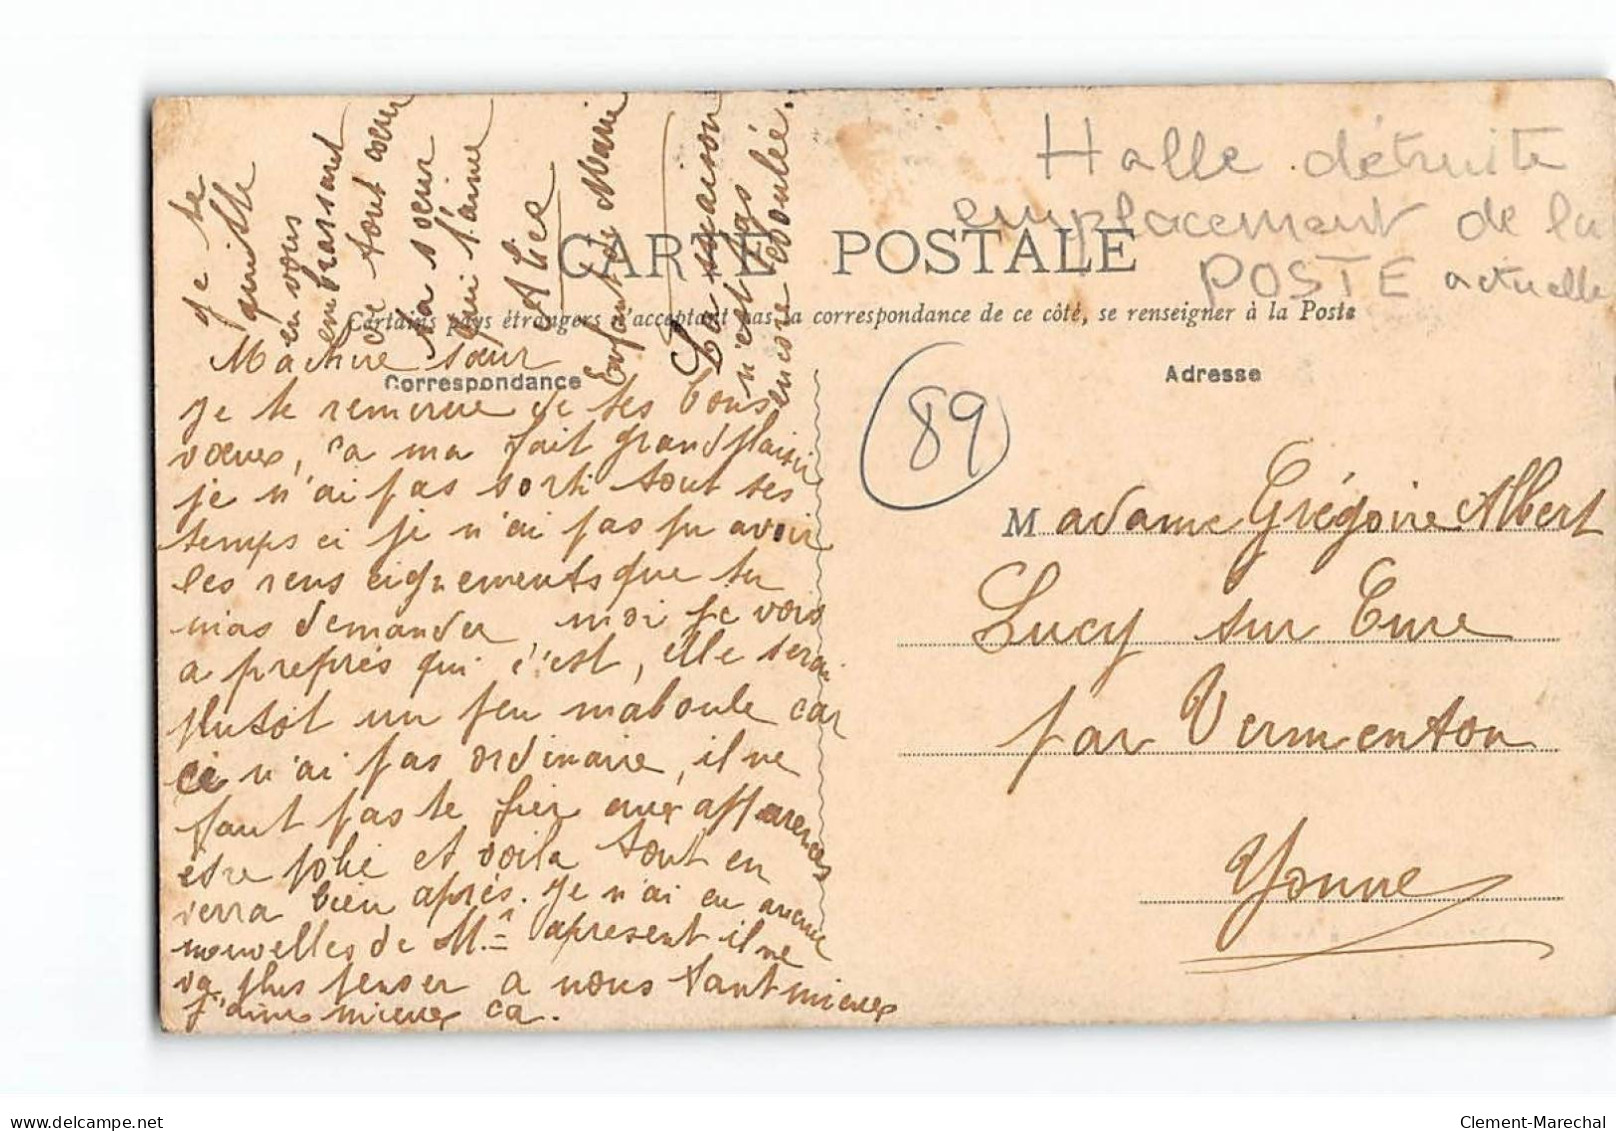 Halle détruite
emplacement de la
POSTE actuelle
CARTE POSTALE
Certains pays étrangers n'acceptant pas la correspondance de ce côté, se renseigner à la Poste
Correspondance
Adresse
89
Ma chire sœur
je te remercie de tes bons
vœux, ca ma fait grand plaisir
je n'ai pas sorti tout ses
temps ci je n'ai pas pu avoir
les rens eignements que tu
mas demander, moi je vois
a preprés qui c'est, elle serai
plutôt un peu maboule car
ci n'ai pas ordinaire, il ne
faut pas te fier aux apparences
être jolie et voila tout en
verra bien après. Je n'ai eu aucune
nouvelles de M. apresent il ne
va plus penser a nous tant mieux
j'aime mieux ca.
je te
quitte
en vous
embrassant
de tout cœur
ta sœur
qui t'aime
Alice
Enfant de Marie
La maison
n'est pas
encore
Madame Grégoire Albert
Lucy sur Cure
par Vermenton
Yonne
delcampe.net
Clement-Marechal